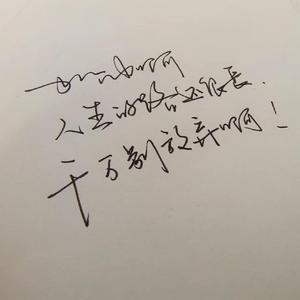 啊
人生的路还很长.
千万别放弃啊！